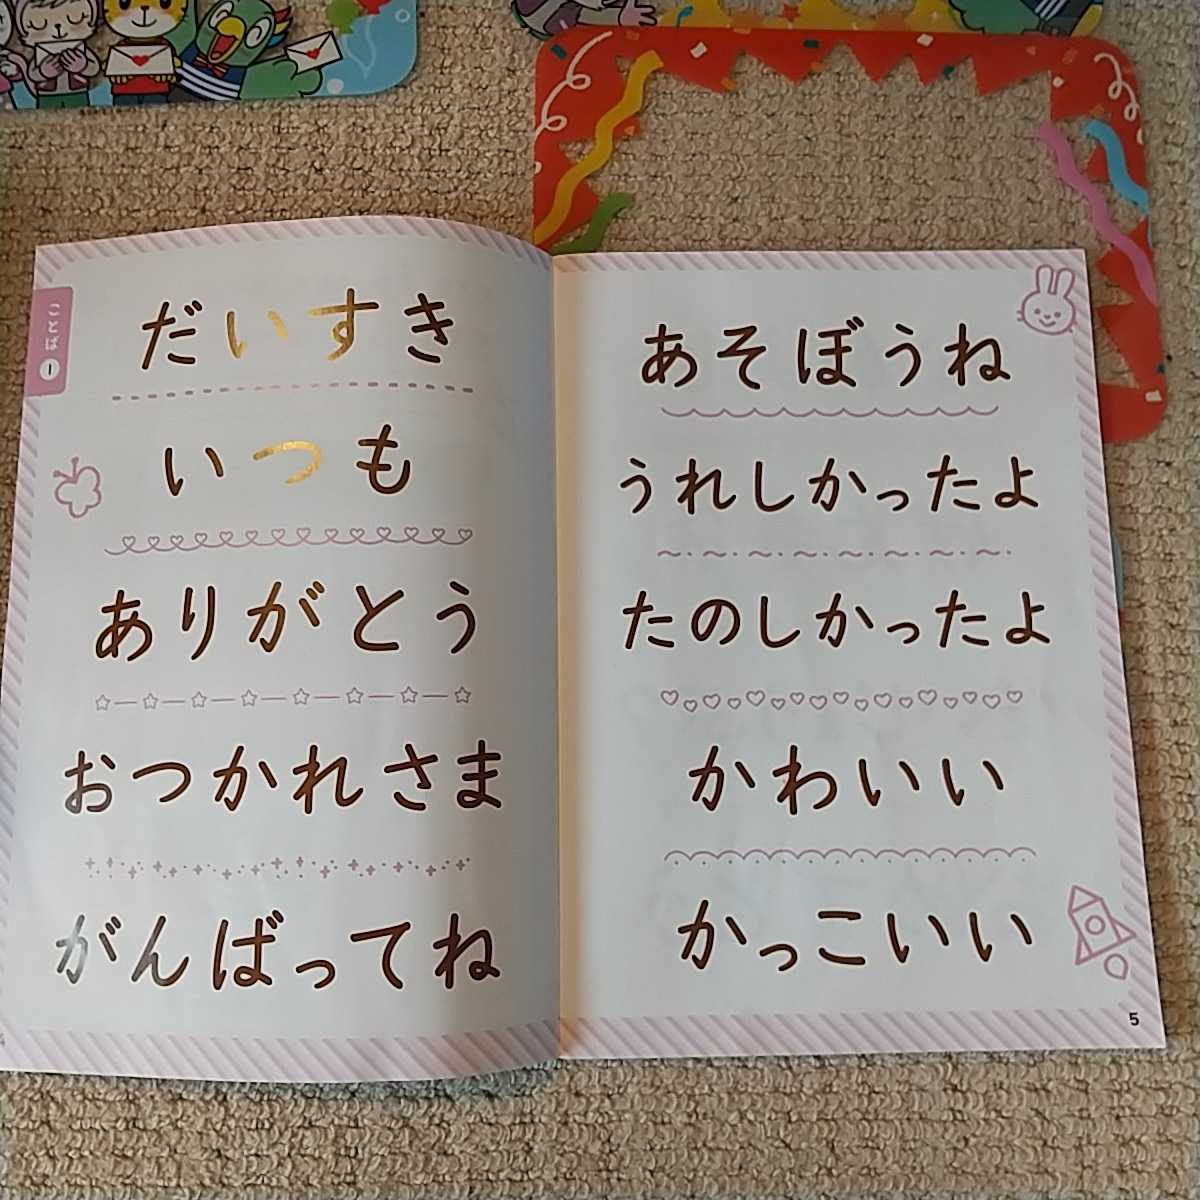 ことば 1
だいすき
いつも
ありがとう
おつかれさま
がんばってね
4
あそぼうね
うれしかったよ
たのしかったよ
かわいい
かっこいい
5